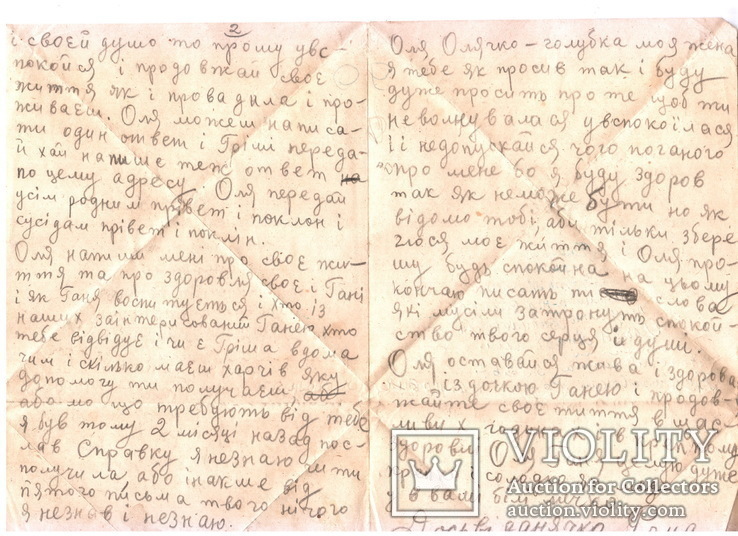 2
і своєй душо то прошу увс-
покойся і продовжай своє
життя як і провадила і про-
живаєш. Оля можеш написа-
ти один ответ і Грімі переда-
й хай напише теж ответ на
по цьому адресу. Оля передай
усім родним прівет і поклон і
сусідам прівет і поклін.
Оля напиши мені про своє жи-
ття та про здоровля своє і Гані
і як Ганя воспитується і хто із
наших заінтерисований Ганею хто
тебе відвідує і чи є Гріша вдома
чим і скілько маєш харчів яку
допомогу ти получаєш або
або мо що требують від тебе
я був тому 2 місяці назад пос-
лав Справку я незнаю чи ти
получила або інакше від
пятого письма твого нічого
я незнав і незнаю.
Оля Олячко - голубка моя жена
я тебе як просив так і буду
дуже просить про те щоб ти
неволнувалася увспокоілася
і і недопускайся чого поганого
про мене бо я буду здоров
так як неможе бути но як
відомо тобі, аби тільки збере
глося моє життя і Оля про-
шу будь спокойна на цьому
кончаю писать ті слова
які мусіли затронуть спокой-
ство твого серця й души.
Оля оставайся жива і здорова
із дочкою Ганею і продов-
жайте своє життя в щас-
ливих годинах і в кріпкому
здоровю Оля
VIOLITY
Auction for Collectors
www.violity.com
auction.violity.com